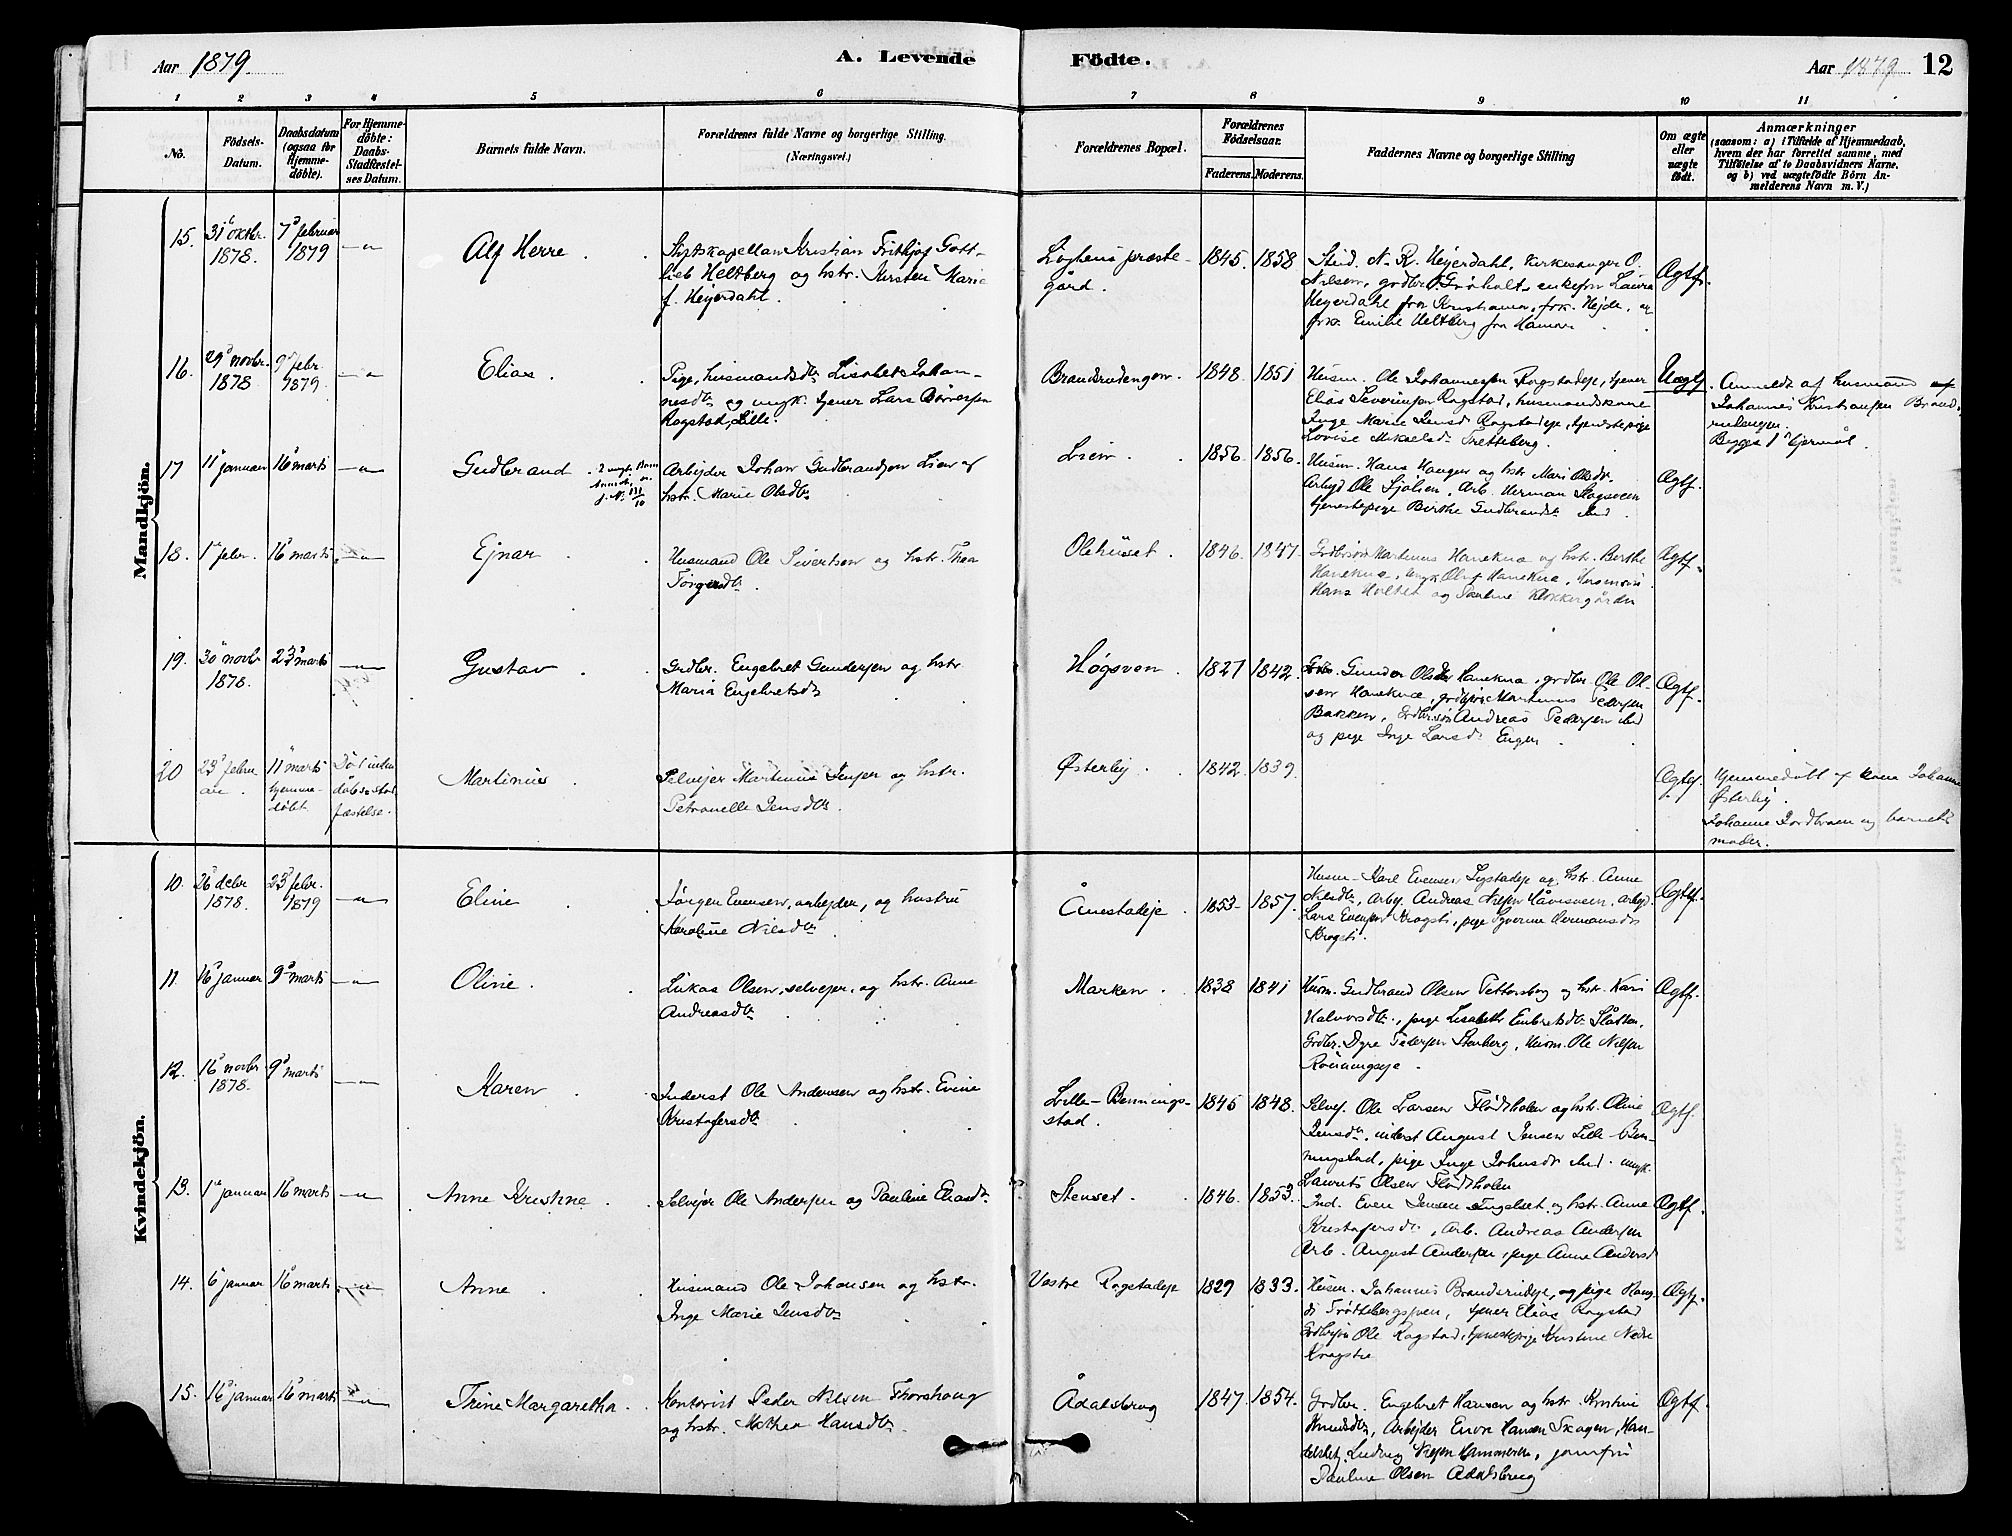 Aar 1879. A. Levende
Födte. Aar 1879 12
1 2 3 4 5 6
7 8 9 10 11
No. Födsels-Datum. Daabsdatum (ogsaa for Hjemmedöbte). For Hjemmedöbte: Daabs-Stadfæstelses Datum. Barnets fulde Navn. Forældrenes fulde Navne og borgerlige Stilling. (Næringsvei.)
Forældrenes Bopæl. Forældrenes Födselsaar. Faderens. Moderens. Faddernes Navne og borgerlige Stilling Om ægte eller uægte födt. Anmærkninger (saasom: a) i Tilfælde af Hjemmedaab, hvem der har forrettet samme, med Tilföielse af to Daabsvidners Navne, og b) ved uægtefödte Börn Anmelderens Navn m. V.)
Mandkjön.
15. 31 oktbr. 1878. 7 februar 1879 Alf Herre
Kristian Frithjof Gott-
lieb Heltberg og hstr. Kirsten Marie
f. Heyerdahl.
Løtens præste-
gård.
1845. 1858
Stud. N. R. Heyerdahl, kirkesanger O.
Nilsen, grdbr. Grøholt, enkefru Laura
Heyerdahl fra Kristiania, frk. Hejde, og
frk. Emilie Heltberg fra Hamar
Ægtf.
16. 29 novbr. 1878 9 febr. 1879. Elias.
Pige, husmandsdtr. Lisabet Johan-
nesdtr. og ungk. tjener Lars Børresen
Rogstad, Lille.
Brandsrudengen. 1848. 1851
Husm. Ole Johannesen Rogstadeje, tjener
Elias Severinsen Rogstad, husmandskone
Inge Marie Jensd. Rogstadeje, tjenestepige
Lovise Mikaelsd. Tretteberg.
Uægtf.
Anmeldt af husmand
Johannes Kristiansen Brands-
rudengen.
Begges 1ste lejermål
17 11 januar 16 marts Gudbrand
Arbejder Johan Gudbrandsen Lien og
hstr. Marie Olsdtr.
Lien. 1856. 1856.
Husm. Hans Haugen og hstr. Mari Olsdtr.
Arbejd. Ole Sjølien, Arb. Herman Skogsveen
tjenestepige Birthe Gudbrandsd. ibid.
Ægtf.
18. 1 febr. 16 marts Ejnar
Husmand Ole Sivertsen og hstr. Thea
Torgersdtr.
Olehuset. 1846. 1847.
Grdbrsøn Martinus Hanekna og hstr. Berthe
Hanekna, ungk. Oluf Hanekna, Husmsøn
Hans Holtet og Pauline Klokkergården
Ægtf.
19. 30 novbr 1878. 23 marts Gustav
Grdbr. Engebret Gundersen og hstr.
Maria Engebretsdtr
Høgsven. 1827 1842.
Gunder Olsen Hanekna, grdbr. Ole Ol-
sen Hanekna, grdbrsøn Martinus Pedersen
Bakken, Grdbrsøn Andreas Pedersen ibid
og pige Inge Larsd. Engen.
Ægtf.
20 23 febru ar. 11 marts hjemme-døbt. Død inden dåbens stad-fæstelse. Martinius
Selvejer Martinius Jensen og hstr.
Petronelle Jensdtr.
Østerby. 1842. 1839.
Ægtf.
Hjemmedøbt af kone Johanne
Østerby.
Johanne Nordbraen og barnets
moder.
Kvindekjön.
10. 26 debr 1878. 23 febr. 1879 Eline
Jørgen Evensen, arbejder, og hustru
Karoline Nilsdtr.
Ånestadeje. 1853 1857.
Husm. Karl Evensen Lystadeje og hstr. Anne
Nilsdtr., Arbej. Andreas Nilsen, arbejd.
Lars Evensen Krogsti, pige Hermansdtr
Krogsti.
Ægtf.
11. 16 januar 9 marts Oline.
Lukas Olsen, selvejer, og hstr. Anne
Andreasdtr.
Marken. 1838 1841
Husm. Gudbrand Olsen Pettersborg og hstr. Kari
Halvorsdtr., pige Lisabeth Embretsdtr. Slåtten,
Grdbr. Dyre Pedersen Storberg, Husm. Ole Nilsen
Rønningseje.
Ægtf.
12. 16 novbr 1878. 9 marts Karen
Inderst Ole Andersen og hstr. Evine
Kristofersdtr.
Lille-Bennings-
stad.
1845 1848.
Selvej. Ole Larsen Flodsholen og hstr. Oline
Jensdtr, inderst August Jensen Lille-Ben-
ningstad, pige Inge Johnsdtr ibid. ungk.
Laurits Olsen Flodsholen
Ægtf.
13. 1 januar 16 marts Anne Kristine.
Selvejer Ole Andersen og Pauline Eliasdtr.
Stenset. 1846. 1853.
Ind. Even Jensen Engelset og hstr. Anne
Kristofersdtr., Arb. Andreas Andersen
Arb. August Andersen, pige Anne Andersd
Ægtf.
14. 6 januar 16 marts Anne
Husmand Ole Johansen og hstr.
Inge Marie Jensdtr
Vestre Rogstadeje 1829 1833.
Husm. Johannes Brandsrudeje, og pige
Trøttebergseven, tjener Elias Rogstad
Grdbrsøn Ole Rogstad, tjenestepige Kristine Nedre
Krogstie
Ægtf.
15. 16 januar 16 marts Trine Margaretha.
Kontorist Peder Nilsen Thorshaug
og hstr. Mathea Hansdtr.
Ådalsbrug 1847. 1854.
Grdbr. Engebret Hansen og hstr. Kristine
Knudsdtr, Arbejder Even Hansen Skogen, Han-
delsbetj. Ludvig Nilsen Hammeren, jomfru
Pauline Olsen Ådalsbrug
Ægtf.